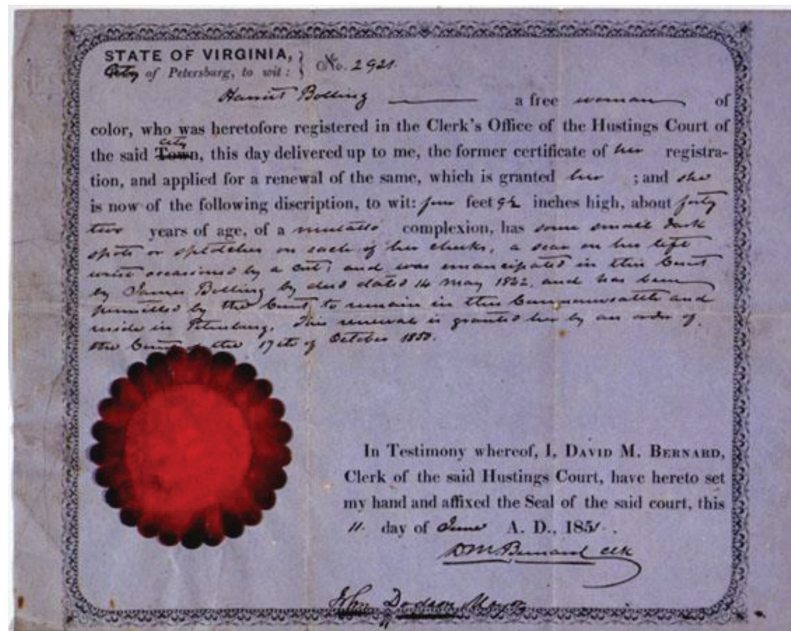 STATE OF VIRGINIA,
City of Petersburg, to wit: } No. 2921
Harriet Bolling a free woman of
color, who was heretofore registered in the Clerk's Office of the Hustings Court of
city
the said Town, this day delivered up to me, the former certificate of her registra-
tion, and applied for a renewal of the same, which is granted her ; and she
is now of the following discription, to wit: five feet 9½ inches high, about forty
two years of age, of a mulatto complexion, has some small dark
spots or splotches on each of her cheeks, a scar on her left
wrist occasioned by a cut; and was emancipated in this Court
by James Bolling by deed dated 14 May 1842 and has been
permitted by the Court to remain in this Commonwealth and
reside in Petersburg. This renewal is granted her by an order of
the Court of the 17th of October 1850.
In Testimony whereof, I, DAVID M. BERNARD,
Clerk of the said Hustings Court, have hereto set
my hand and affixed the Seal of the said court, this
11 day of June A. D., 1851.
D M Bernard clk
John Dodson Mayor